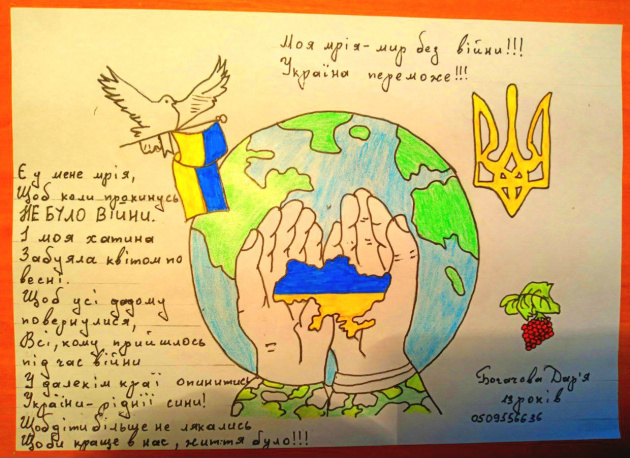 Моя мрія - мир без війни!!!
Україна переможе!!!
Є у мене мрія,
Щоб коли прокинусь
НЕ БУЛО ВІЙНИ.
І моя хатина
Забуяла квітом по
весні.
Щоб усі додому
повернулися,
Всі, кому прийшлось
під час війни
У далекім краї опинитись
України - ріднії сини!
Щоб діти більше не лякались
Щоби краще в нас, життя було!!!
Богачова Дар'я
13 років
0509556636